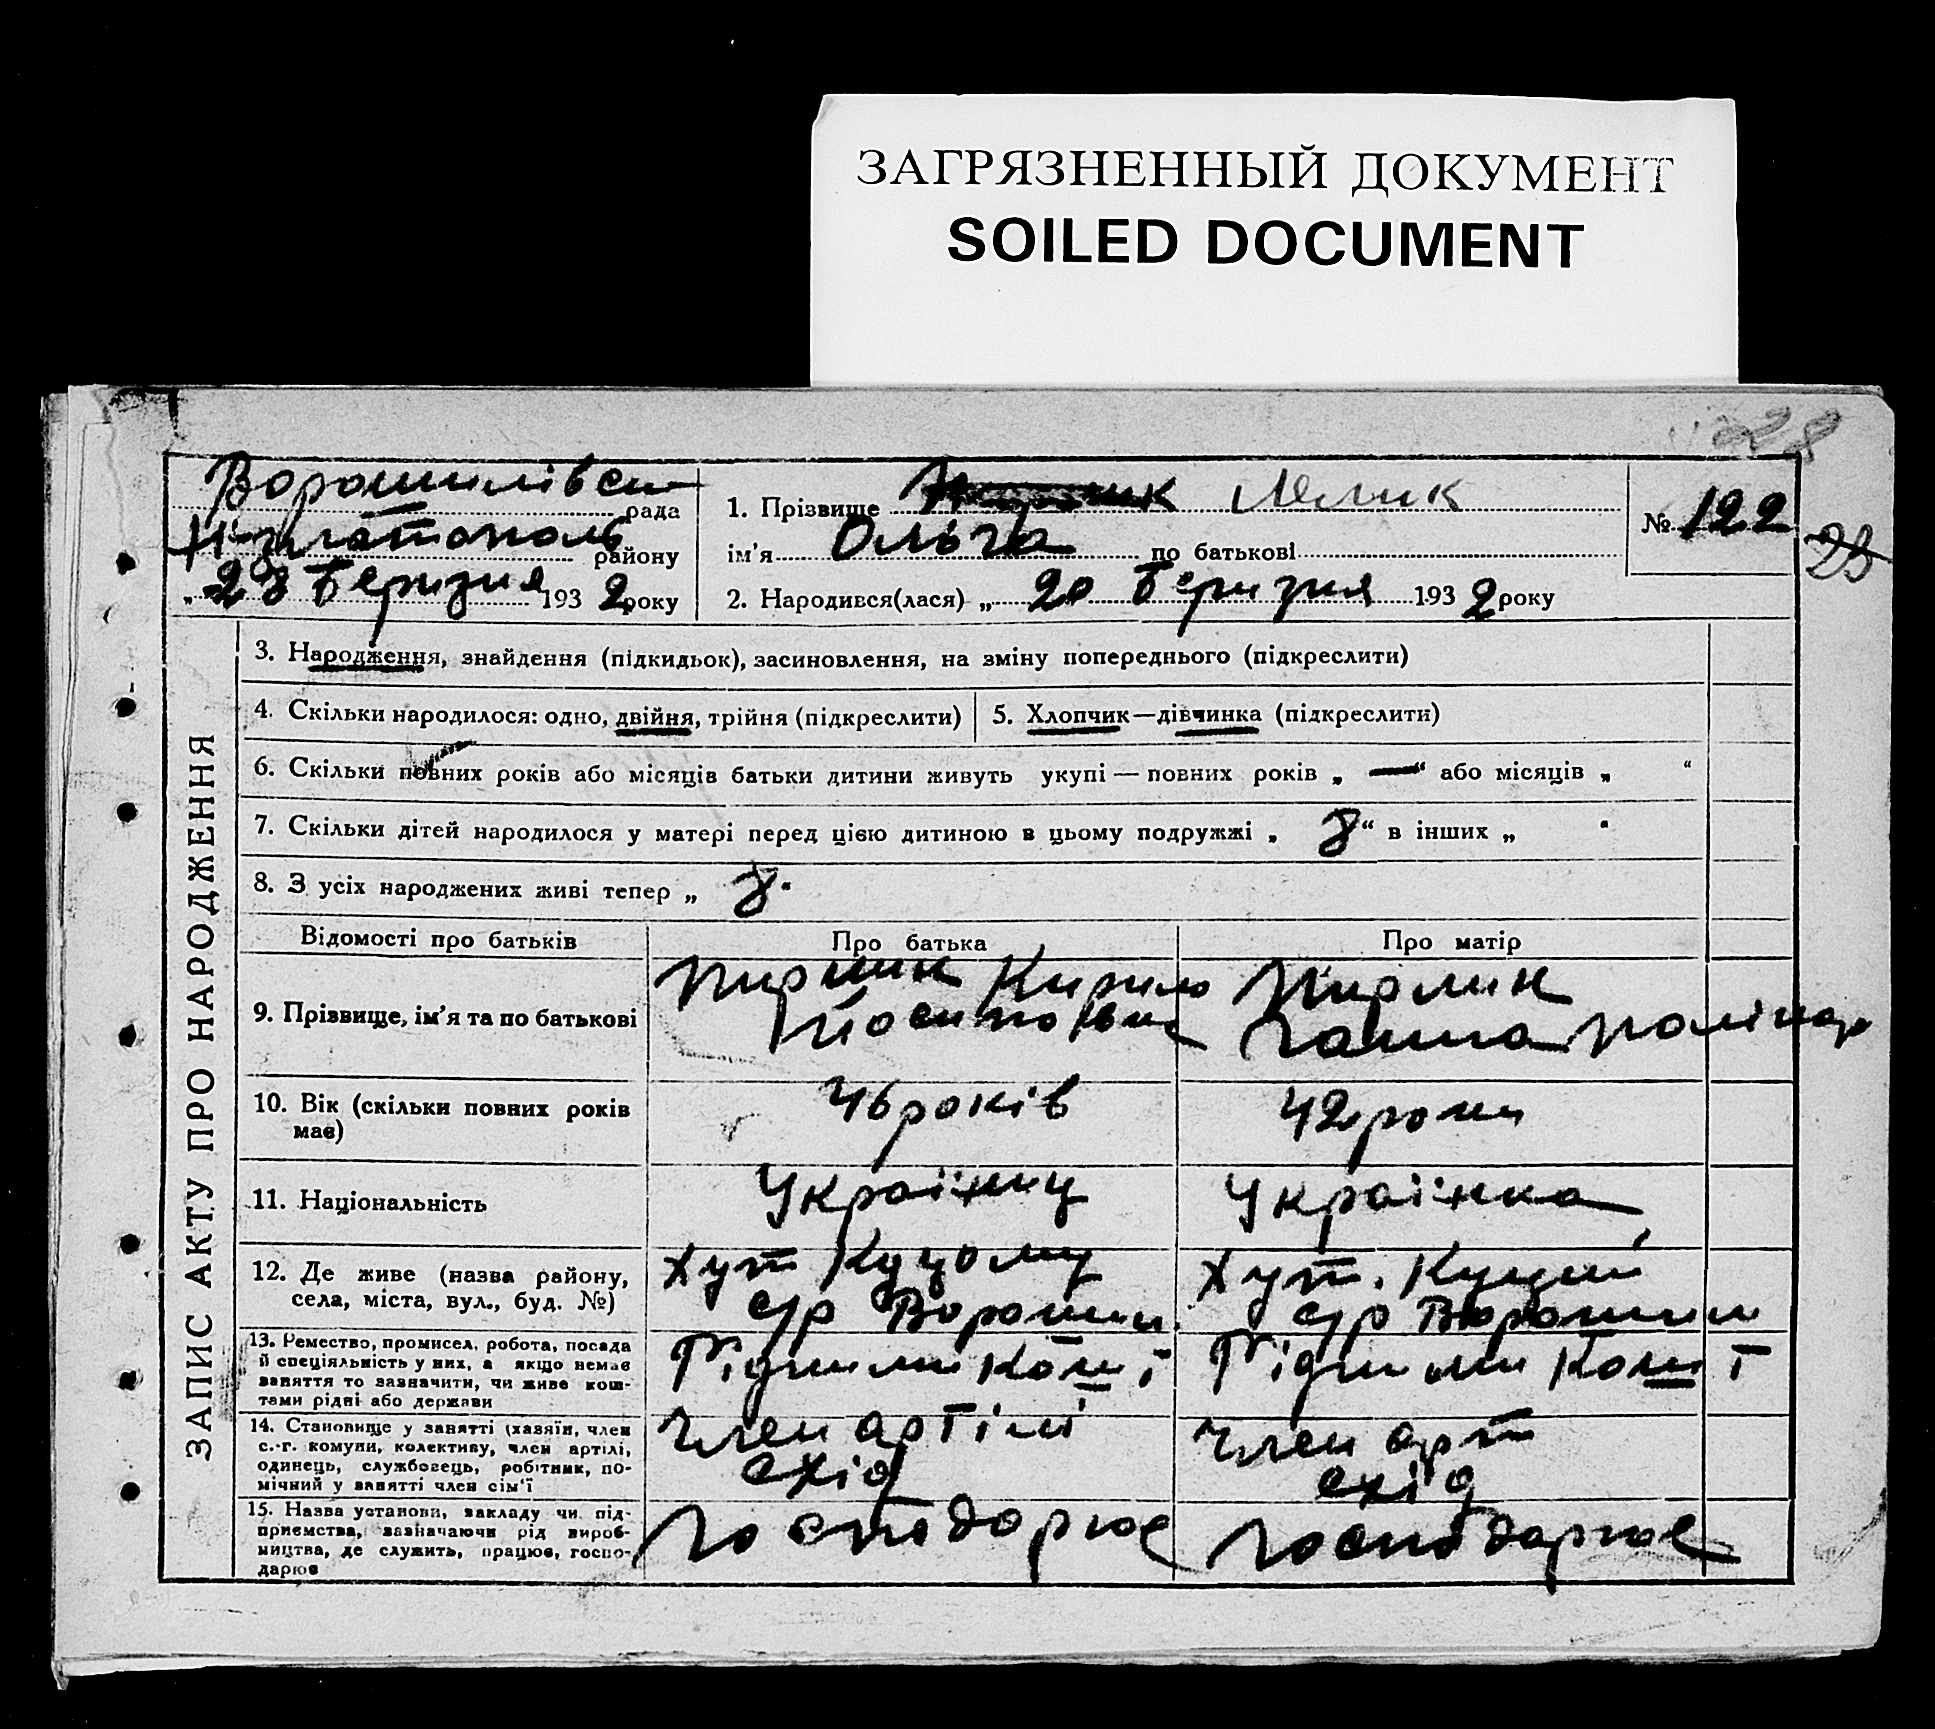 ЗАГРЯЗНЕННЫЙ ДОКУМЕНТ
SOILED DOCUMENT
28
Ворошилівськ рада
Н-Златополь району
„23 Березня 1932 року
1. Прізвище
ім'я Ольга по батькові
2. Народився(лася) „ 20 Березня 1932 року
№ 122
ЗАПИС АКТУ ПРО НАРОДЖЕННЯ
3. Народження, знайдення (підкидьок), засиновлення, на зміну попереднього (підкреслити)
4. Скільки народилося: одно, двійня, трійня (підкреслити)
5. Хлопчик—дівчинка (підкреслити)
6. Скільки повних років або місяців батьки дитини живуть укупі — повних років „ —“ або місяців „ “
7. Скільки дітей народилося у матері перед цією дитиною в цьому подружжі „ 8“ в інших „ “
8. З усіх народжених живі тепер „ 8.
Відомості про батьків
Про батька
Про матір
9. Прізвище, ім'я та по батькові
Кирило
Йосипович
Ганна
10. Вік (скільки повних років
має)
46 років
42 роки
11. Національність
Українец
Українка
12. Де живе (назва району,
села, міста, вул., буд. №)
Хут Куцому
с/р Ворошил.
Хут. Куций
с/р Ворошил
13. Ремество, промисел, робота, посада
й спеціяльність у них, а якщо немає
заняття то зазначити, чи живе кош-
тами рідні або держави
Рідними кошт
Рідними кошт
14. Становище у занятті (хазяїн, член
с.-г. комуни, колективу, член артілі,
одинець, службовець, робітник, по-
мічний у занятті член сім'ї
Член артілі
схід
Член арт
схід
15. Назва установи, закладу чи під-
приємства, зазначаючи рід вироб-
ництва, де служить, працює, госпо-
дарює
Господарює
Господарює